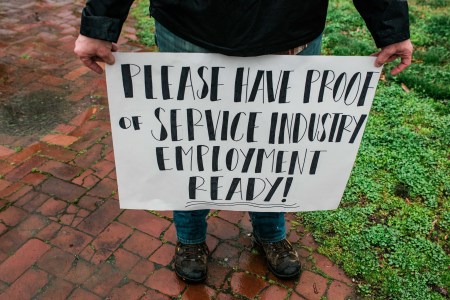 PLEASE HAVE PROOF
OF SERVICE INDUSTRY
EMPLOYMENT
READY!